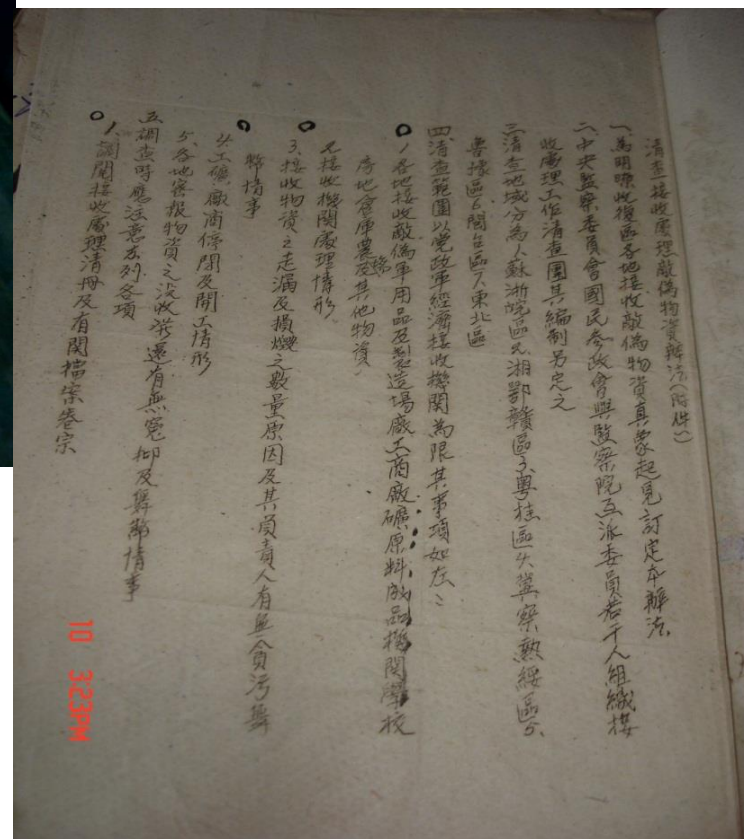 清查接收處理敵偽物資辦法(附件一)
一、為明瞭收復區各地接收敵偽物資真象起見訂定本辦法
二、中央監察委員會國民參政會與監察院互派委員若干人組織接
收處理工作清查團其編制另定之
三、清查地域分為1、蘇浙皖區2、湘鄂贛區3、粵桂區4、冀察熱綏區5、
魯豫區6、閩台區7、東北區
四、清查範圍以黨政軍經濟接收機關為限其事項如左:
1、各地接收敵偽軍用品及製造場廠工商廠礦原料成品機關學校
房地倉庫農場及其他物資
2、接收機關處理情形
3、接收物資之走漏及損燬之數量原因及其負責人有無貪污舞
弊情事
4、工礦廠商停閉及開工情形
5、各地密报物資之沒收發還有無冤抑及舞弊情事
五、調查時應注意左列各項
1、調閱接收處理清冊及有関檔案卷宗
10 3:23PM